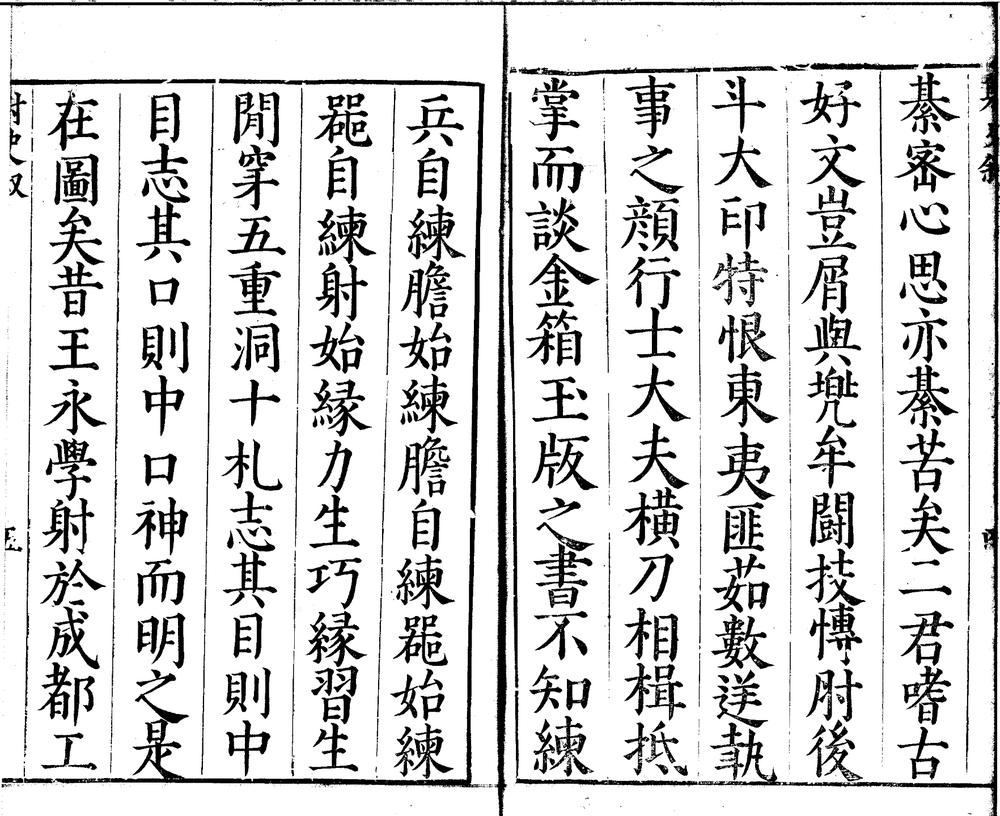 綦密心思亦綦苦矣二君嗜古
好文豈屑與兠牟闘技慱肘後
斗大印特恨東夷匪茹數逆執
事之顔行士大夫横刀相楫抵
掌而談金箱玉版之書不知練
兵自練膽始練膽自練噐始練
噐自練射始縁力生巧縁習生
閒穿五重洞十札志其目則中
目志其口則中口神而明之是
在圖矣昔王永學射於成都工